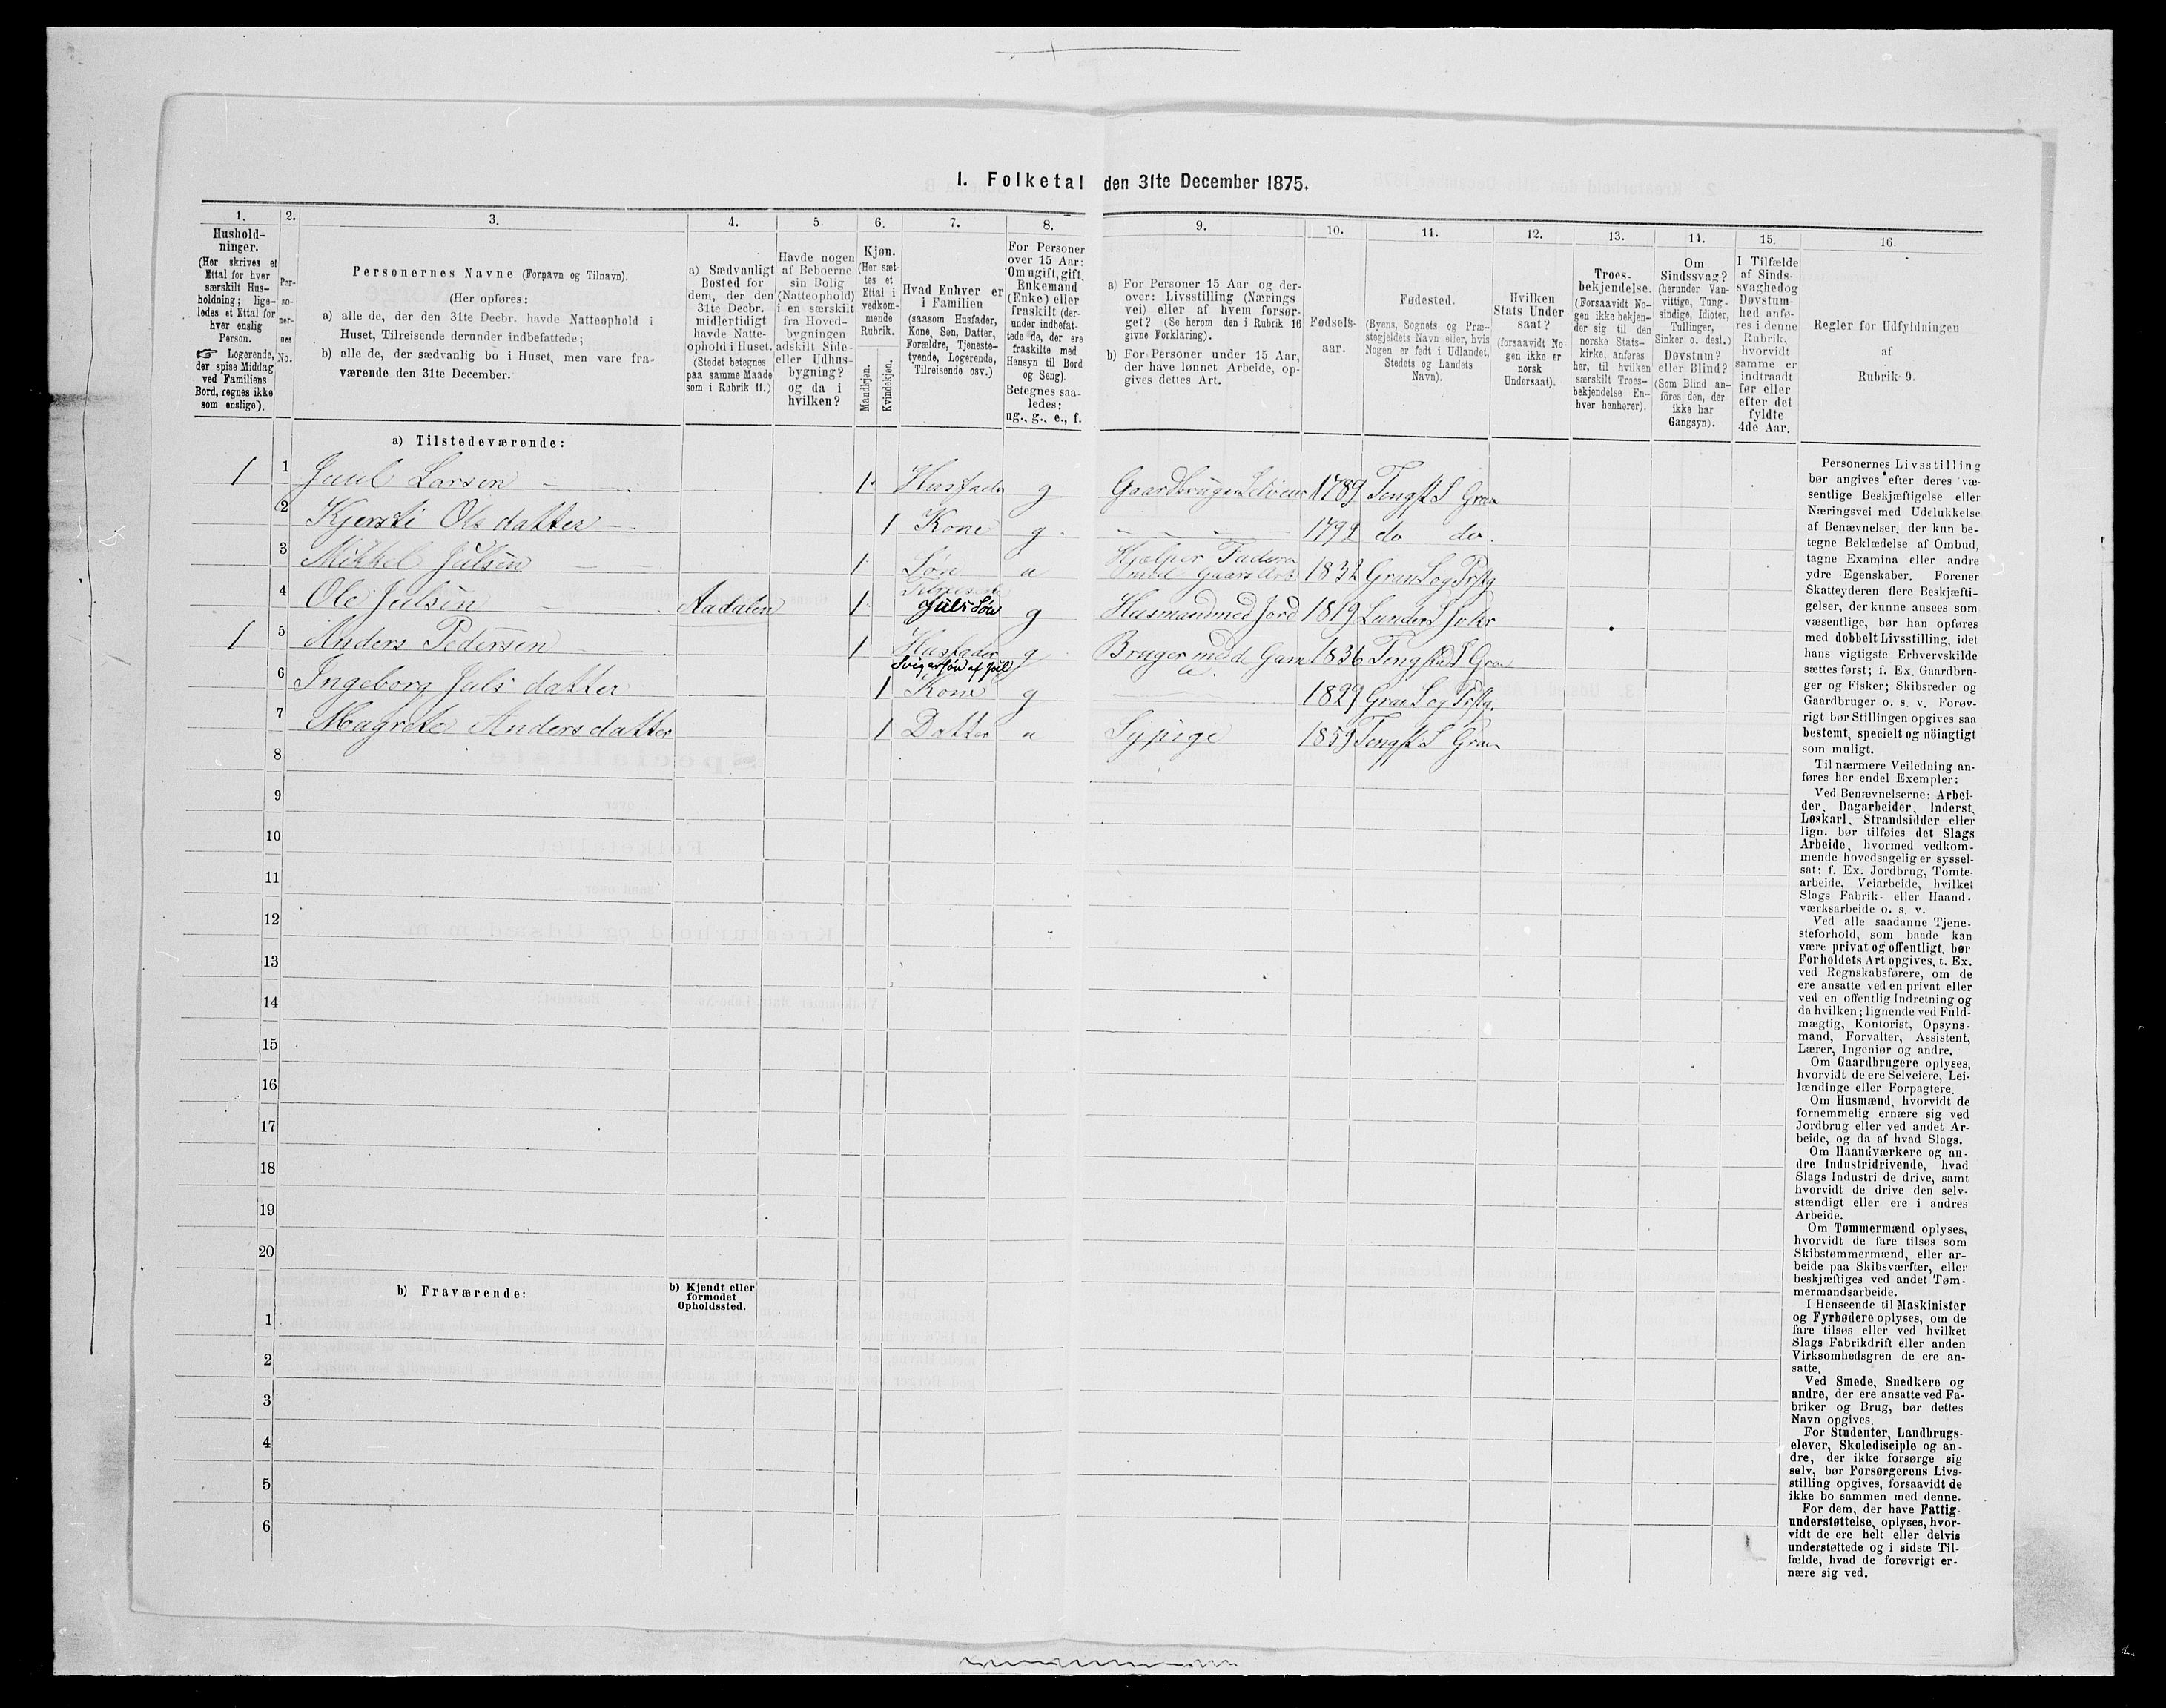 I. Folketal den 31te December 1875.
1. 2. 3. 4. 5. 6. 7. 8. 9. 10. 11. 12. 13. 14. 15. 16.
Hushold-
ninger.
(Her skrives et
Ettal for hver
særskilt Hus-
holdning; lige-
ledes et Ettal for
hver enslig
Person.
☞ Logerende,
der spise Middag
ved Familiens
Bord, regnes ikke
som enslige).
Per-
so-
ner-
nes
No.
Personernes Navne (Fornavn og Tilnavn).
(Her opføres:
a) alle de, der den 31te Decbr. havde Natteophold i
Huset, Tilreisende derunder indbefattede;
b) alle de, der sædvanlig bo i Huset, men vare fra-
værende den 31te December.
a) Sædvanligt
Bosted for
dem, der den
31te Decbr.
midlertidigt
havde Natte-
ophold i Huset.
(Stedet betegnes
paa samme Maade
som i Rubrik 11.)
Havde nogen
af Beboerne
sin Bolig
(Natteophold)
i en særskilt
fra Hoved-
bygningen
adskilt Side-
eller Udhus-
bygning?
og da i
hvilken?
Kjøn.
(Her sæt-
tes et
Ettal i
vedkom-
mende
Rubrik.
Mandkjøn.
Kvindekjøn.
Hvad Enhver er
i Familien
(saasom Husfader,
Kone, Søn, Datter,
Forældre, Tjeneste-
tyende, Logerende,
Tilreisende osv.)
For Personer
over 15 Aar:
Om ugift, gift,
Enkemand
(Enke) eller
fraskilt (der-
under indbefat-
tede de, der ere
fraskilte med
Hensyn til Bord
og Seng).
Betegnes saa-
ledes:
ug., g., e., f.
a) For Personer 15 Aar og der-
over: Livsstilling (Nærings
vei) eller af hvem forsør-
get? (Se herom den i Rubrik 16
givne Forklaring).
b) For Personer under 15 Aar,
der have lønnet Arbeide, op-
gives dettes Art.
Fødsels-
aar.
Fødested.
(Byens, Sognets og Præ-
stegjeldets Navn eller, hvis
Nogen er født i Udlandet,
Stedets og Landets
Navn).
Hvilken
Stats Under
saat?
(forsaavidt No-
gen ikke er
norsk
Undersaat).
Troes-
bekjendelse.
(Forsaavidt No-
gen ikke bekjen-
der sig til den
norske Stats-
kirke, anføres
her, til hvilken
særskilt Troes-
bekjendelse En-
hver henhører).
Om
Sindssvag?
(herunder Van-
vittige, Tung-
sindige, Idioter,
Tullinger,
Sinker o. desl.)
Døvstum?
eller Blind?
(Som Blind an-
føres den, der
ikke har
Gangsyn).
I Tilfælde
af Sinds-
svaghed og
Døvstum-
hed anfø-
res i denne
Rubrik,
hvorvidt
samme er
indtraadt
før eller
efter det
fyldte
4de Aar.
Regler for Udfyldningen
af
Rubrik 9.
a) Tilstedeværende:
1 1 Juul Larsen 1 Husfader g Gaardbruger Selveier 1789 Tengst S Gran
2 Kjersti Olsdatter 1 Kone g 1792 do do.
3 Mikkel Julsen 1 Søn u Hjelper Faderen med Gaards Arb. 1832 Gran S og Prstg
4 Ole Julsen Aadalen 1 Juls Søn g Husmand med Jord 1819 Lunder S
1 5 Anders Pedersen 1 Husfader Svigersøn af Jul g Bruger 1836 Tengst S Gran
6 Ingeborg Juls datter 1 Kone g 1829 Gran S og Prstg.
7 Magrete Andersdatter 1 Datter u Sypige 1859 Tengst S Gran
8
9
10
11
12
13
14
15
16
17
18
19
20
b) Fraværende:
b) Kjendt eller
formodet
Opholdssted.
1
2
3
4
5
6
Personernes Livsstilling
bør angives efter deres væ-
sentlige Beskjæftigelse eller
Næringsvei med Udelukkelse
af Benævnelser, der kun be-
tegne Beklædelse af Ombud,
tagne Examina eller andre
ydre Egenskaber. Forener
Skatteyderen flere Beskjæfti-
gelser, der kunne ansees som
væsentlige, bør han opføres
med dobbelt Livsstilling, idet
hans vigtigste Erhvervskilde
sættes først; f. Ex. Gaardbru-
ger og Fisker; Skibsreder og
Gaardbruger o. s. v. Forøv-
rigt bør Stillingen opgives saa
bestemt, specielt og nöiagtigt
som muligt.
Til nærmere Veiledning an-
føres her endel Exempler:
Ved Benævnelserne: Arbei-
der, Dagarbeider, Inderst,
Løskarl, Strandsidder eller
lign. bør tilføies det Slags
Arbeide, hvormed vedkom-
mende hovedsagelig er syssel-
sat; f. Ex. Jordbrug, Tomte-
arbeide, Veiarbeide, hvilket
Slags Fabrik- eller Haand-
værksarbeide o. s. v.
Ved alle saadanne Tjene-
steforhold, som baade kan
være privat og offentligt, bør
Forholdets Art opgives, t. Ex.
ved Regnskabsførere, om de
ere ansatte ved en privat eller
ved en offentlig Indretning og
da hvilken; lignende ved Fuld-
mægtig, Kontorist, Opsyns-
mand, Forvalter, Assistent,
Lærer, Ingeniør og andre.
Om Gaardbrugere oplyses,
hvorvidt de ere Selveiere, Lei-
lændinge eller Forpagtere.
Om Husmænd, hvorvidt de
fornemmelig ernære sig ved
Jordbrug eller ved andet Ar-
beide, og da af hvad Slags.
Om Haandværkere og an-
dre Industridrivende, hvad
Slags Industri de drive, samt
hvorvidt de drive den selv-
stændigt eller ere i andres
Arbeide.
Om Tømmermænd oplyses,
hvorvidt de fare tilsøs som
Skibstømmermænd, eller ar-
beide paa Skibsværfter, eller
beskjæftiges ved andet Tøm-
mermandsarbeide.
I Henseende til Maskinister
og Fyrbødere oplyses, om de
fare tilsøs eller ved hvilket
Slags Fabrikdrift eller anden
Virksomhedsgren de ere an-
satte.
Ved Smede, Snedkere og
andre, der ere ansatte ved Fa-
briker og Brug, bør dettes
Navn opgives.
For Studenter, Landbrugs-
elever, Skoledisciple og an-
dre, der ikke forsørge sig
selv, bør Forsørgerens Livs-
stilling opgives, forsaavidt de
ikke bo sammen med denne.
For dem, der have Fattig-
understøttelse, oplyses, hvor-
vidt de ere helt eller delvis
understøttede og i sidste Til-
fælde, hvad de forøvrigt er-
nære sig ved.